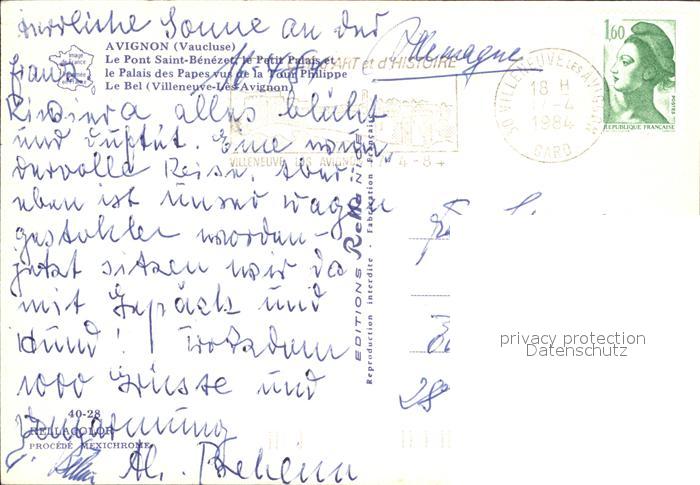 herrliche Sonne an der
AVIGNON (Vaucluse)
Le Pont Saint-Bénézet, le Petit Palais et
le Palais des Papes vus de la Tour Philippe
Le Bel (Villeneuve-Les-Avignon)
Allemagne
ART et d'HISTOIRE
VILLENEUVE LES AVIGNON 17-4-84
30 VILLENEUVE LES AVIGNON
18 H
17-4
1984
GARD
1,60
POSTES
REPUBLIQUE FRANÇAISE
Riviera alles blüht
und duftet. Eine wun-
dervolle Reise. Aber
eben ist unser Wagen
gestohlen worden -
jetzt sitzen wir da
mit Gepäck und
Hund! Trotzdem
1000 Grüsse und
Umarmung
EDITIONS Rella NICE
Reproduction interdite · Fabrication Française
28
privacy protection
Datenschutz
40-28
RELLACOLOR
PROCÉDÉ MEXICHROME